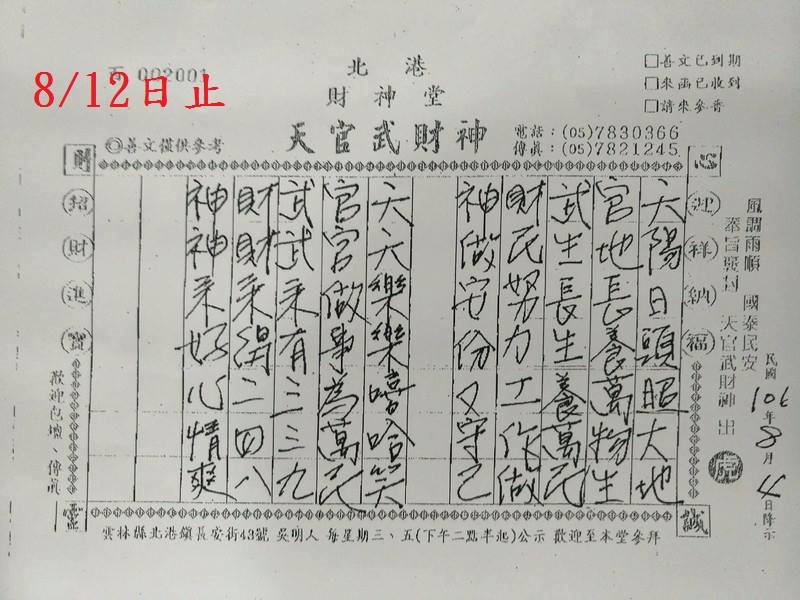 百 002001
8/12日止
北港
財神堂
天官武財神
◎善文僅供參考
電話：(05)7830366
傳真：(05)7821245
□善文已到期
□來函已收到
□請來參香
風調雨順 國泰民安
奉旨發封 天官武財神 出
民國106年8月4日降示
心
迎祥納福
誠
天陽日頭照大地
官地長養萬物生
武生長生養萬民
財民努力工作做
神做安份又守己
天天樂樂嘻哈笑
官官做事為萬民
武武來有三三九
財財來得二四八
神神來好心情爽
財
招財進寶
靈
歡迎包壇、傳真
雲林縣北港鎮長安街43號 吳明人 每星期三、五(下午二點半起)公示 歡迎至本堂參拜